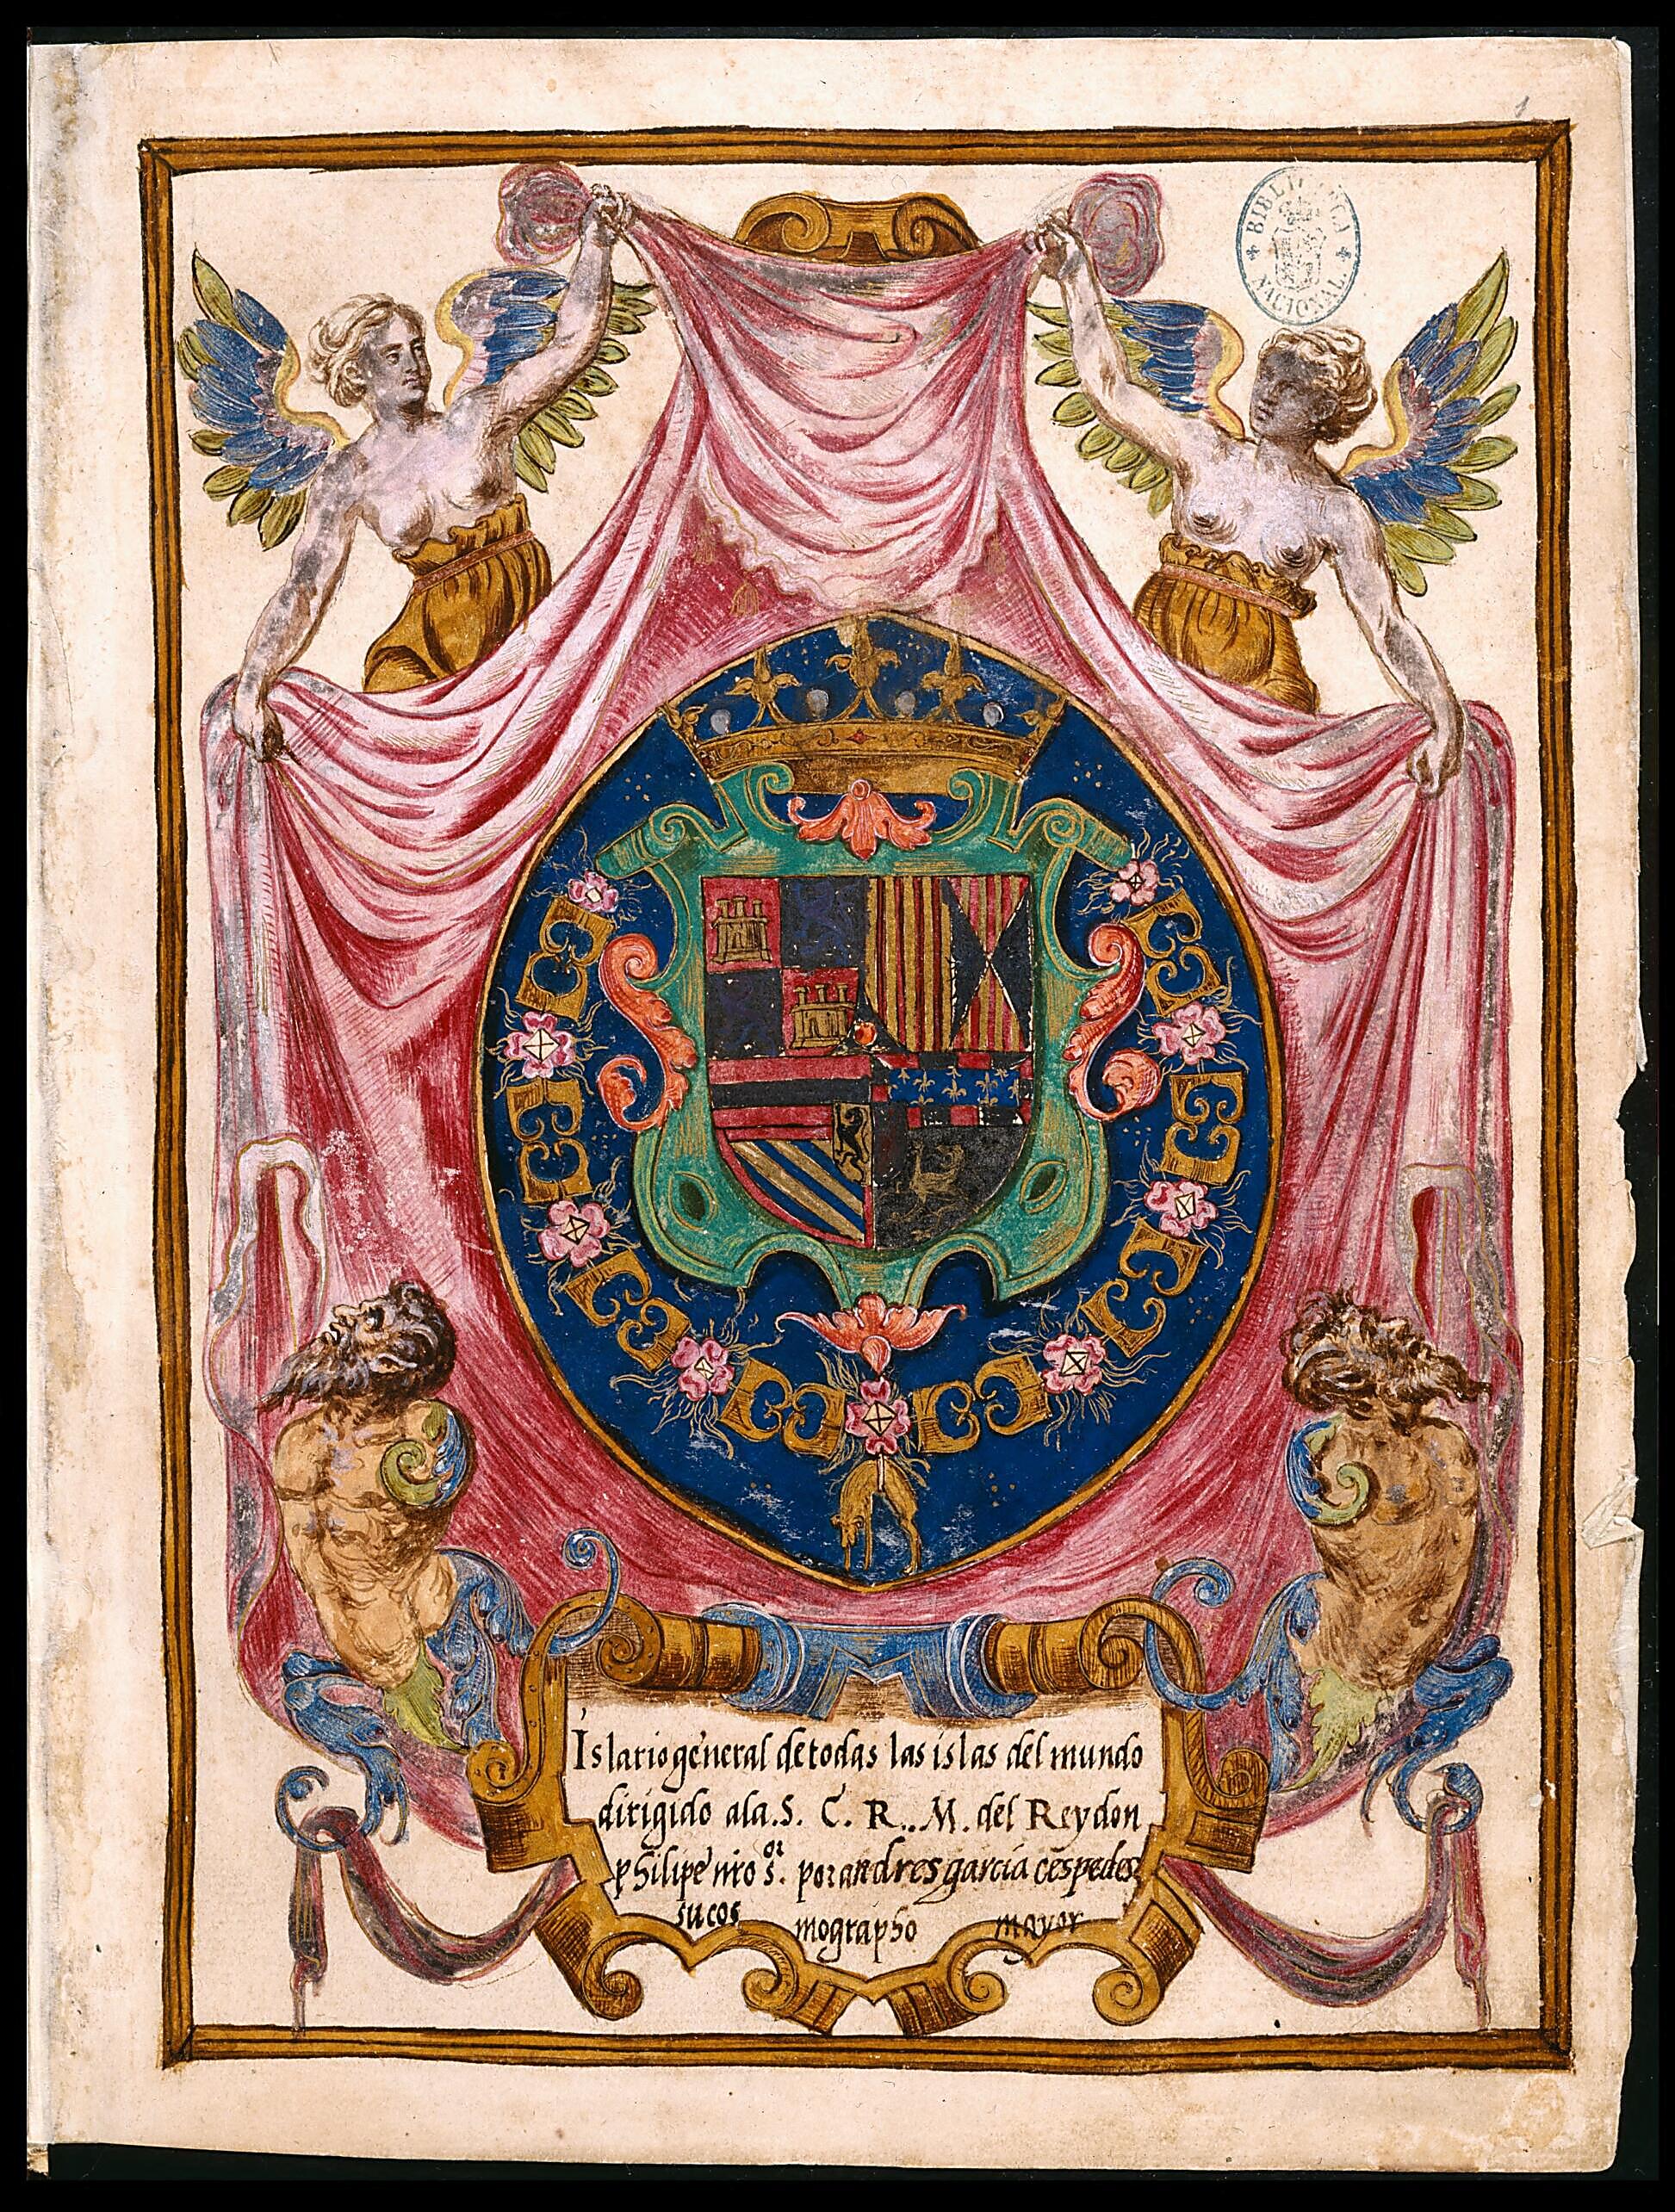 1
BIBLIOTECA NACIONAL
Islario general de todas las islas del mundo
dirigido ala. S. C. R. M. del Rey don
philipe nro s.or por andres garcia cespedes
su cos mographo mayor